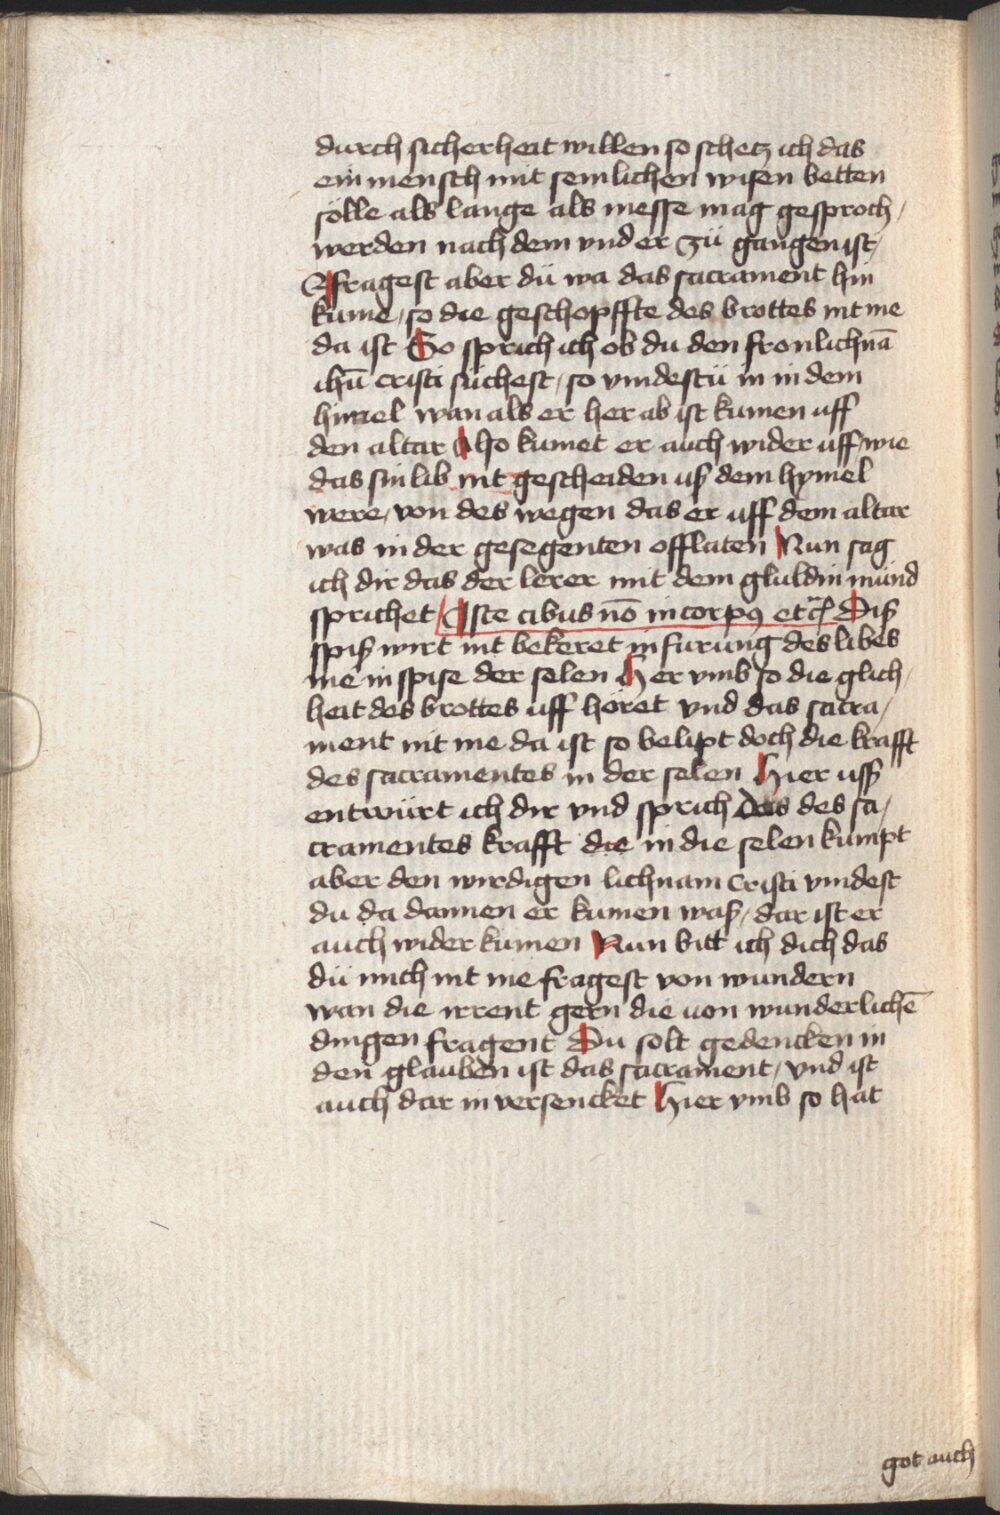 durch sicherheit willen so schetz ich das
ein mensch mit semlichen wisen betten
sölle als lange als messe mag gesproch /
werden nach dem vnd er zü gangen ist /
fragest aber dü wa das sacrament hin
kume / so die geschopffte des brottes nit me
da ist So sprich ich ob du den fronlichnā
ihū cristi süchest / so vindestü in in dem
himel wan als er her ab ist kumen uff
den altar Also kumet er auch wider uff wie
das sin lib nit gescheiden uß dem hymel
were / von des wegen das er uff dem altar
was in der gesegenten offlaten Nun sag
ich dir das der lerer mit dem guldin mund
sprichet Iste cibus nō in corpꝯ etc̄ Diß
spiß wirt nit bekeret in furung des libes
me in spise der selen Her vmb so die glich /
heit des brottes uff höret vnd das sacra /
ment nit me da ist so belipt doch die krafft
des sacramentes in der selen Hier uff
entwürt ich dir vnd sprich das des sa /
cramentes krafft die in die selen kumpt
aber den wirdigen lichnam cristi vindest
du da dannen er kumen waß / dar ist er
auch wider kumen Nun bitt ich dich das
dü mich nit me fragest von wundern
wan die irrent gern die uon wunderlichē
dingen fragent Du solt gedencken in
den glauben ist das sacrament / vnd ist
auch dar in versencket Hier vmb so hat
got auch